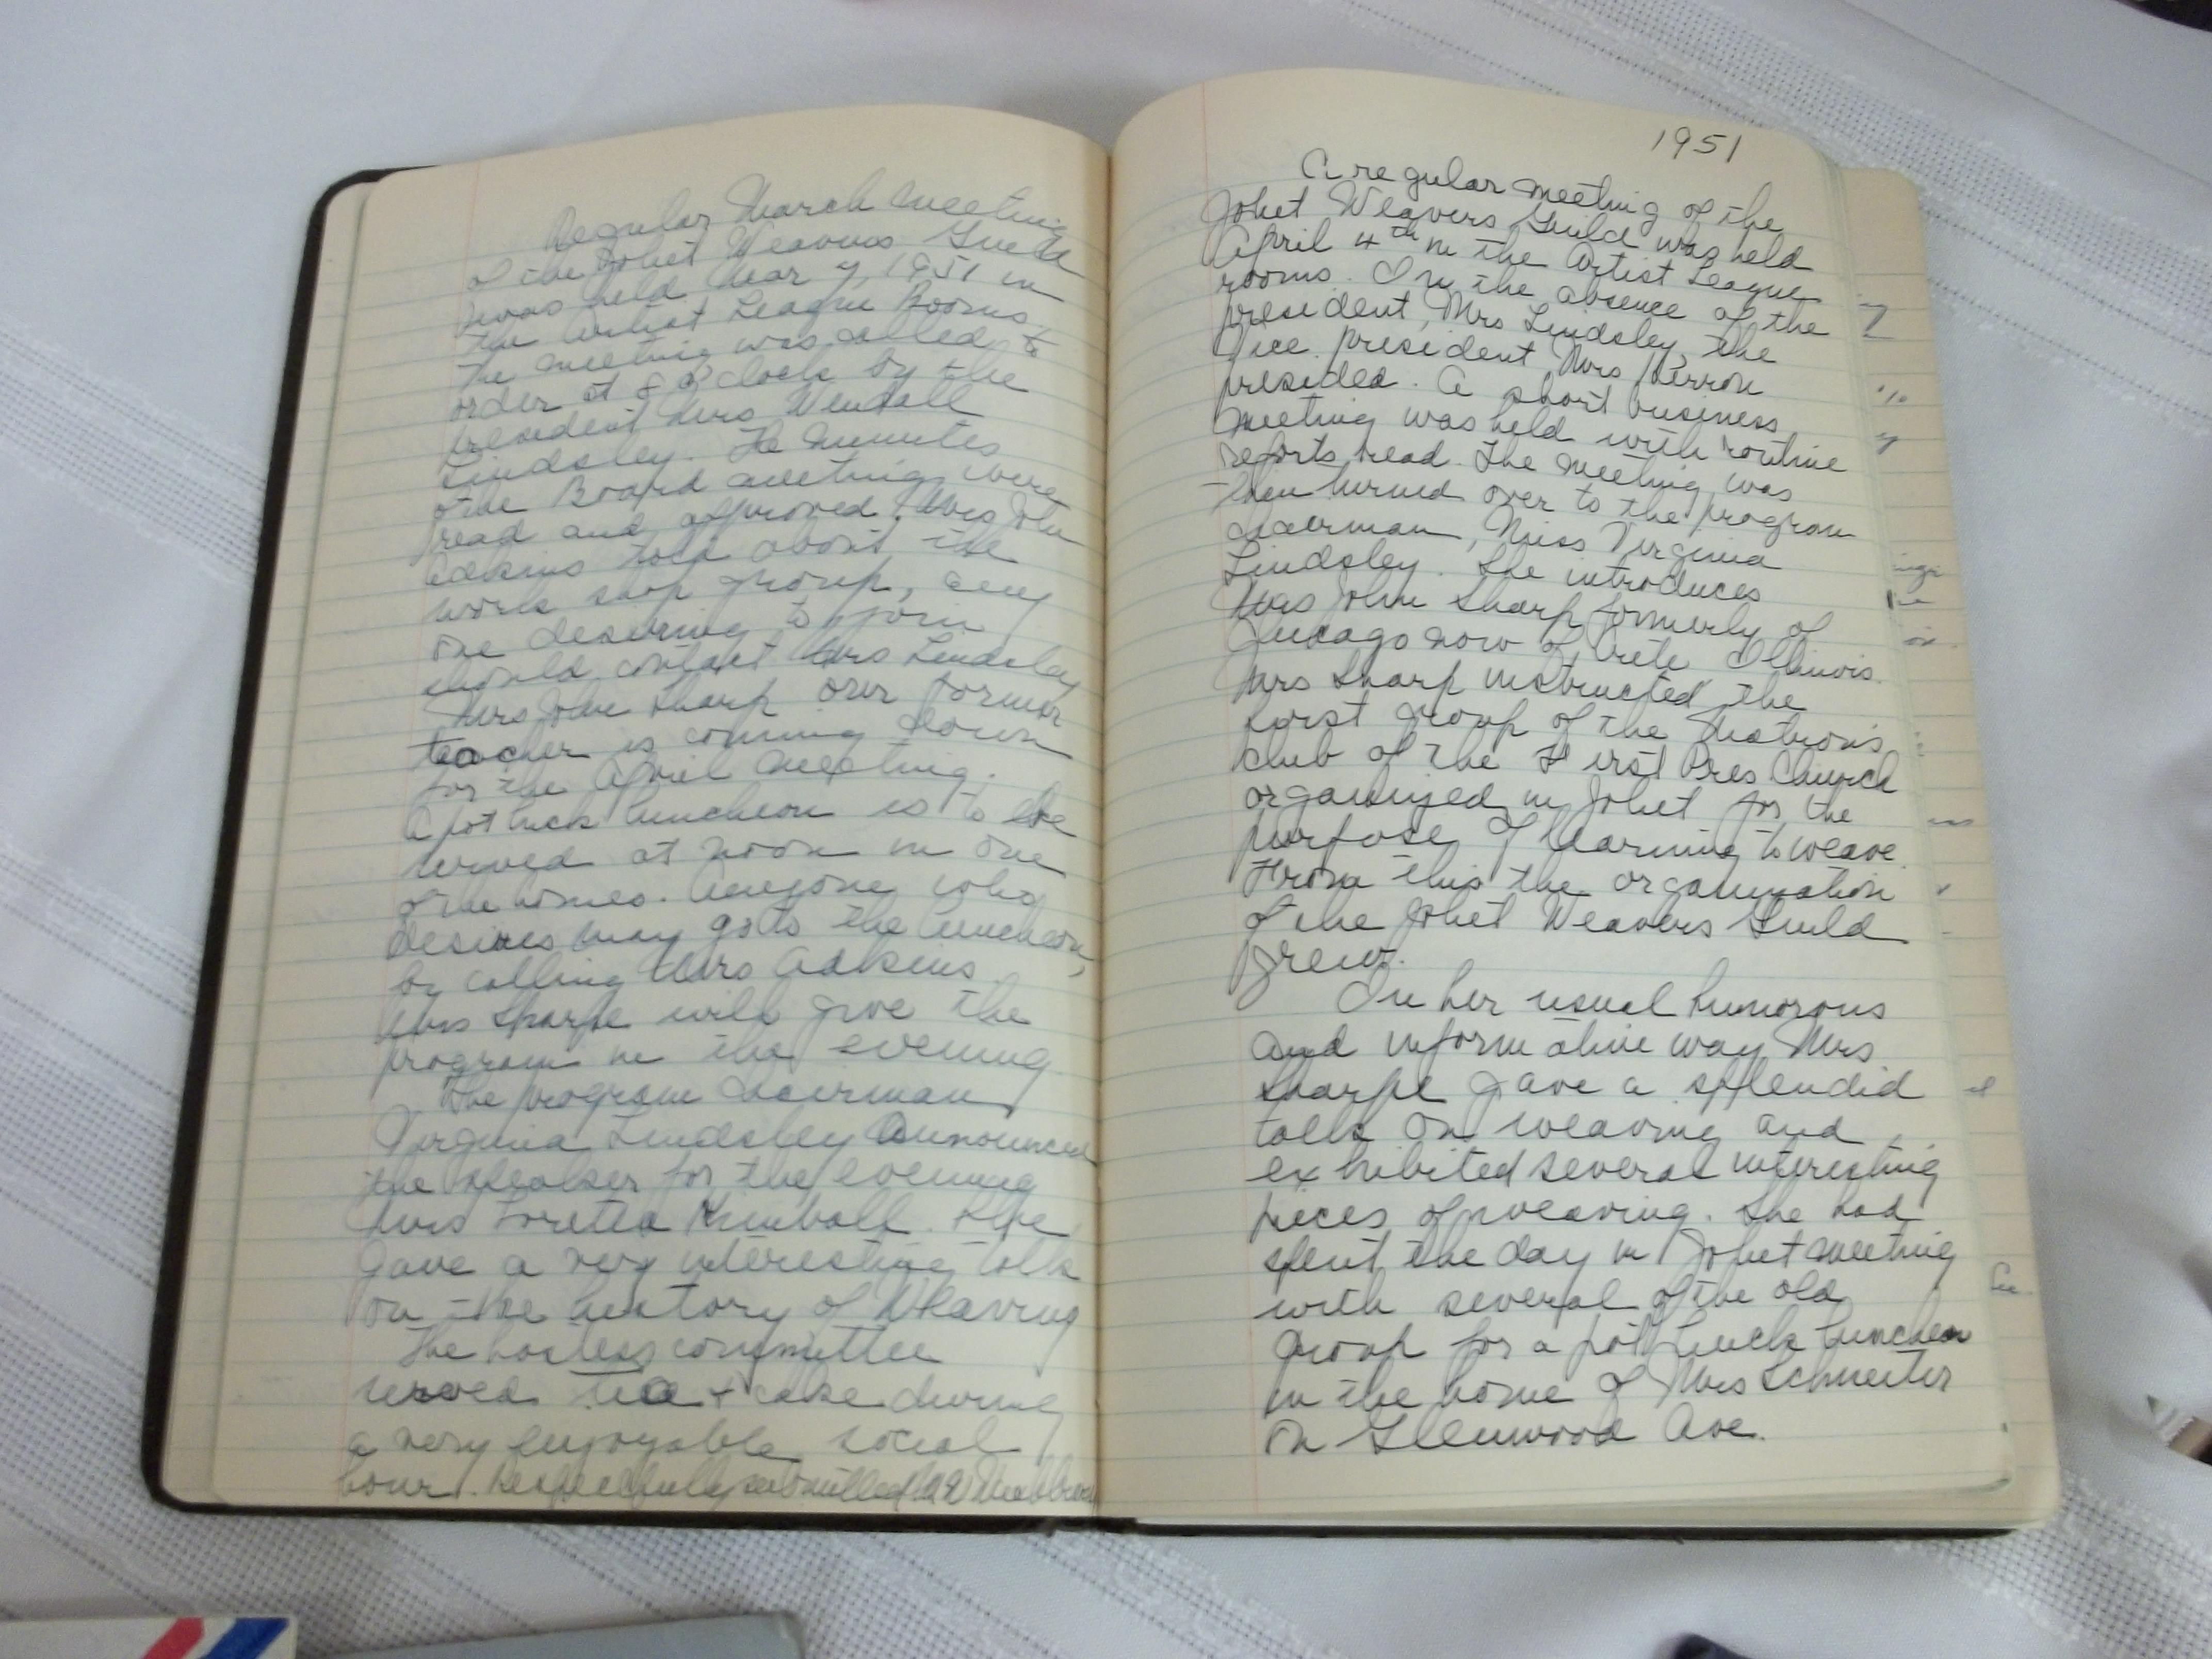 Regular March meeting
of the Joliet Weavers Guild
was held Mar 7, 1951 in
the Artist League Rooms
The meeting was called to
order at 8 o'clock by the
president Mrs Wendall
Lindsley. The minutes
of the Board meeting were
read and approved. Mrs John
Adkins told about the
work shop group, any
one desiring to join
should contact Mrs Lindsley
Mrs John Sharp our former
teacher is coming down
for the April meeting.
A pot luck luncheon is to be
served at noon in one
of the homes. Anyone who
desires may go to the luncheon,
by calling Mrs Adkins
Mrs Sharpe will give the
program in the evening
The program chairman
Virginia Lindsley announced
the speaker for the evening
Mrs Loretta Kimball. She
gave a very interesting talk
on the history of Weaving
The hostess committee
served tea + cake during
a very enjoyable social
hour. Respectfully submitted
1951
A regular meeting of the
Joliet Weavers Guild was held
April 4th in the Artist League
rooms. In the absence of the
president, Mrs Lindsley, the
vice president Mrs Herron
presided. A short business
meeting was held with routine
reports read. The meeting was
then turned over to the program
chairman, Miss Virginia
Lindsley. She introduces
Mrs John Sharp formerly of
Chicago now of Crete Illinois.
Mrs Sharp instructed the
first group of the Matrons
Club of the First Pres Church
organized in Joliet for the
purpose of learning to weave.
From this the organization
of the Joliet Weavers Guild
grew.
In her usual humorous
and informative way Mrs
Sharpe gave a splendid
talk on weaving and
exhibited several interesting
pieces of weaving. She had
spent the day in Joliet meeting
with several of the old
group for a pot luck luncheon
in the home of Mrs Schmeiter
on Glenwood Ave.